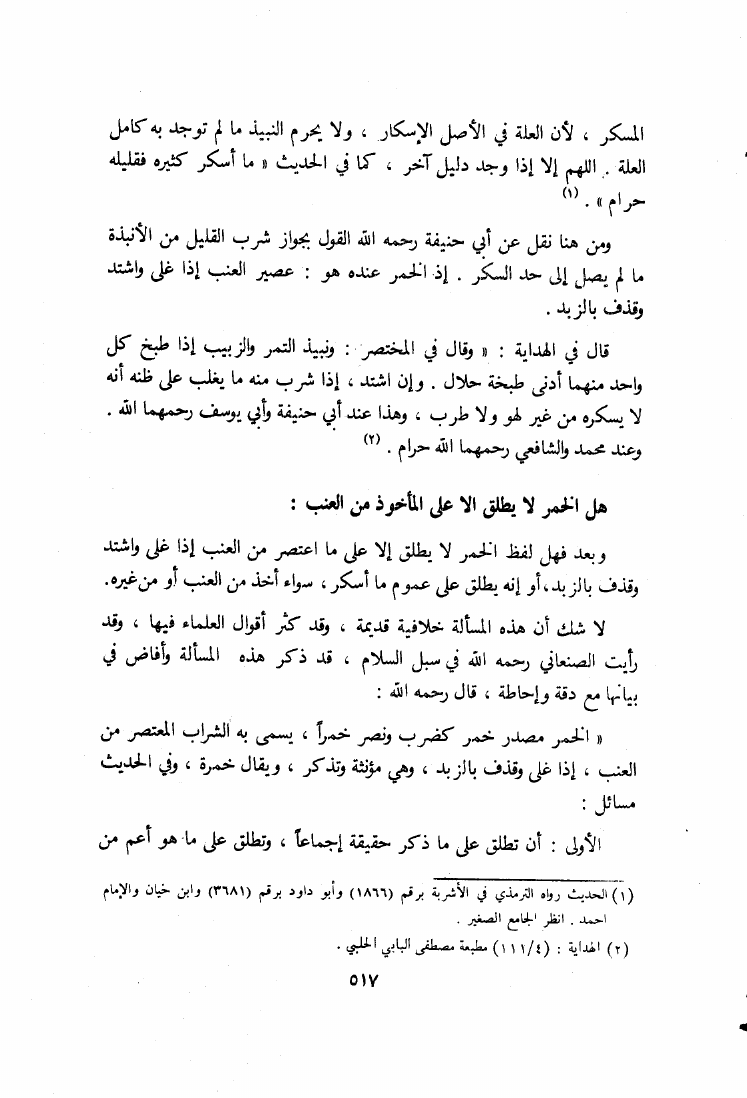 المسكر ، لأن العلة في الأصل الإسكار ، ولا يحرم النبيذ ما لم توجد به كامل
العلة . اللهم إلا إذا وجد دليل آخر ، كما في الحديث « ما أسكر كثيره فقليله
حرام » . (١)
ومن هنا نقل عن أبي حنيفة رحمه الله القول بجواز شرب القليل من الأنبذة
ما لم يصل إلى حد السكر . إذ الخمر عنده هو : عصير العنب إذا غلى واشتد
وقذف بالزبد .
قال في الهداية : « وقال في المختصر : ونبيذ التمر والزبيب إذا طبخ كل
واحد منهما أدنى طبخة حلال . وإن اشتد ، إذا شرب منه ما يغلب على ظنه أنه
لا يسكره من غير لهو ولا طرب ، وهذا عند أبي حنيفة وأبي يوسف رحمهما الله .
وعند محمد والشافعي رحمهما الله حرام . (٢)
هل الخمر لا يطلق الا على المأخوذ من العنب :
وبعد فهل لفظ الخمر لا يطلق إلا على ما اعتصر من العنب إذا غلى واشتد
وقذف بالزبد، أو إنه يطلق على عموم ما أسكر ، سواء أخذ من العنب أو من غيره.
لا شك أن هذه المسألة خلافية قديمة ، وقد كثر أقوال العلماء فيها ، وقد
رأيت الصنعاني رحمه الله في سبل السلام ، قد ذكر هذه المسألة وأفاض في
بيانها مع دقة وإحاطة ، قال رحمه الله :
« الخمر مصدر خمر كضرب ونصر خمراً ، يسمى به الشراب المعتصر من
العنب ، إذا غلى وقذف بالزبد ، وهي مؤنثة وتذكر ، ويقال خمرة ، وفي الحديث
مسائل :
الأولى : أن تطلق على ما ذكر حقيقة إجماعاً ، وتطلق على ما هو أعم من
(١) الحديث رواه الترمذي في الأشربة برقم (١٨٦٦) وأبو داود برقم (٣٦٨١) وابن خيان والإمام
احمد . انظر الجامع الصغير .
(٢) الهداية : (١١١/٤) مطبعة مصطفى البابي الحلبي .
٥١٧